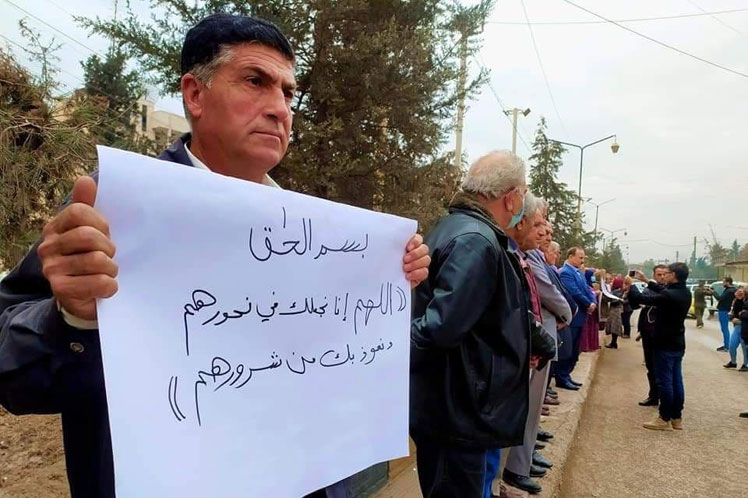 بسم الحق
((اللهم إنا نجعلك في نحورهم
ونعوذ بك من شرورهم))